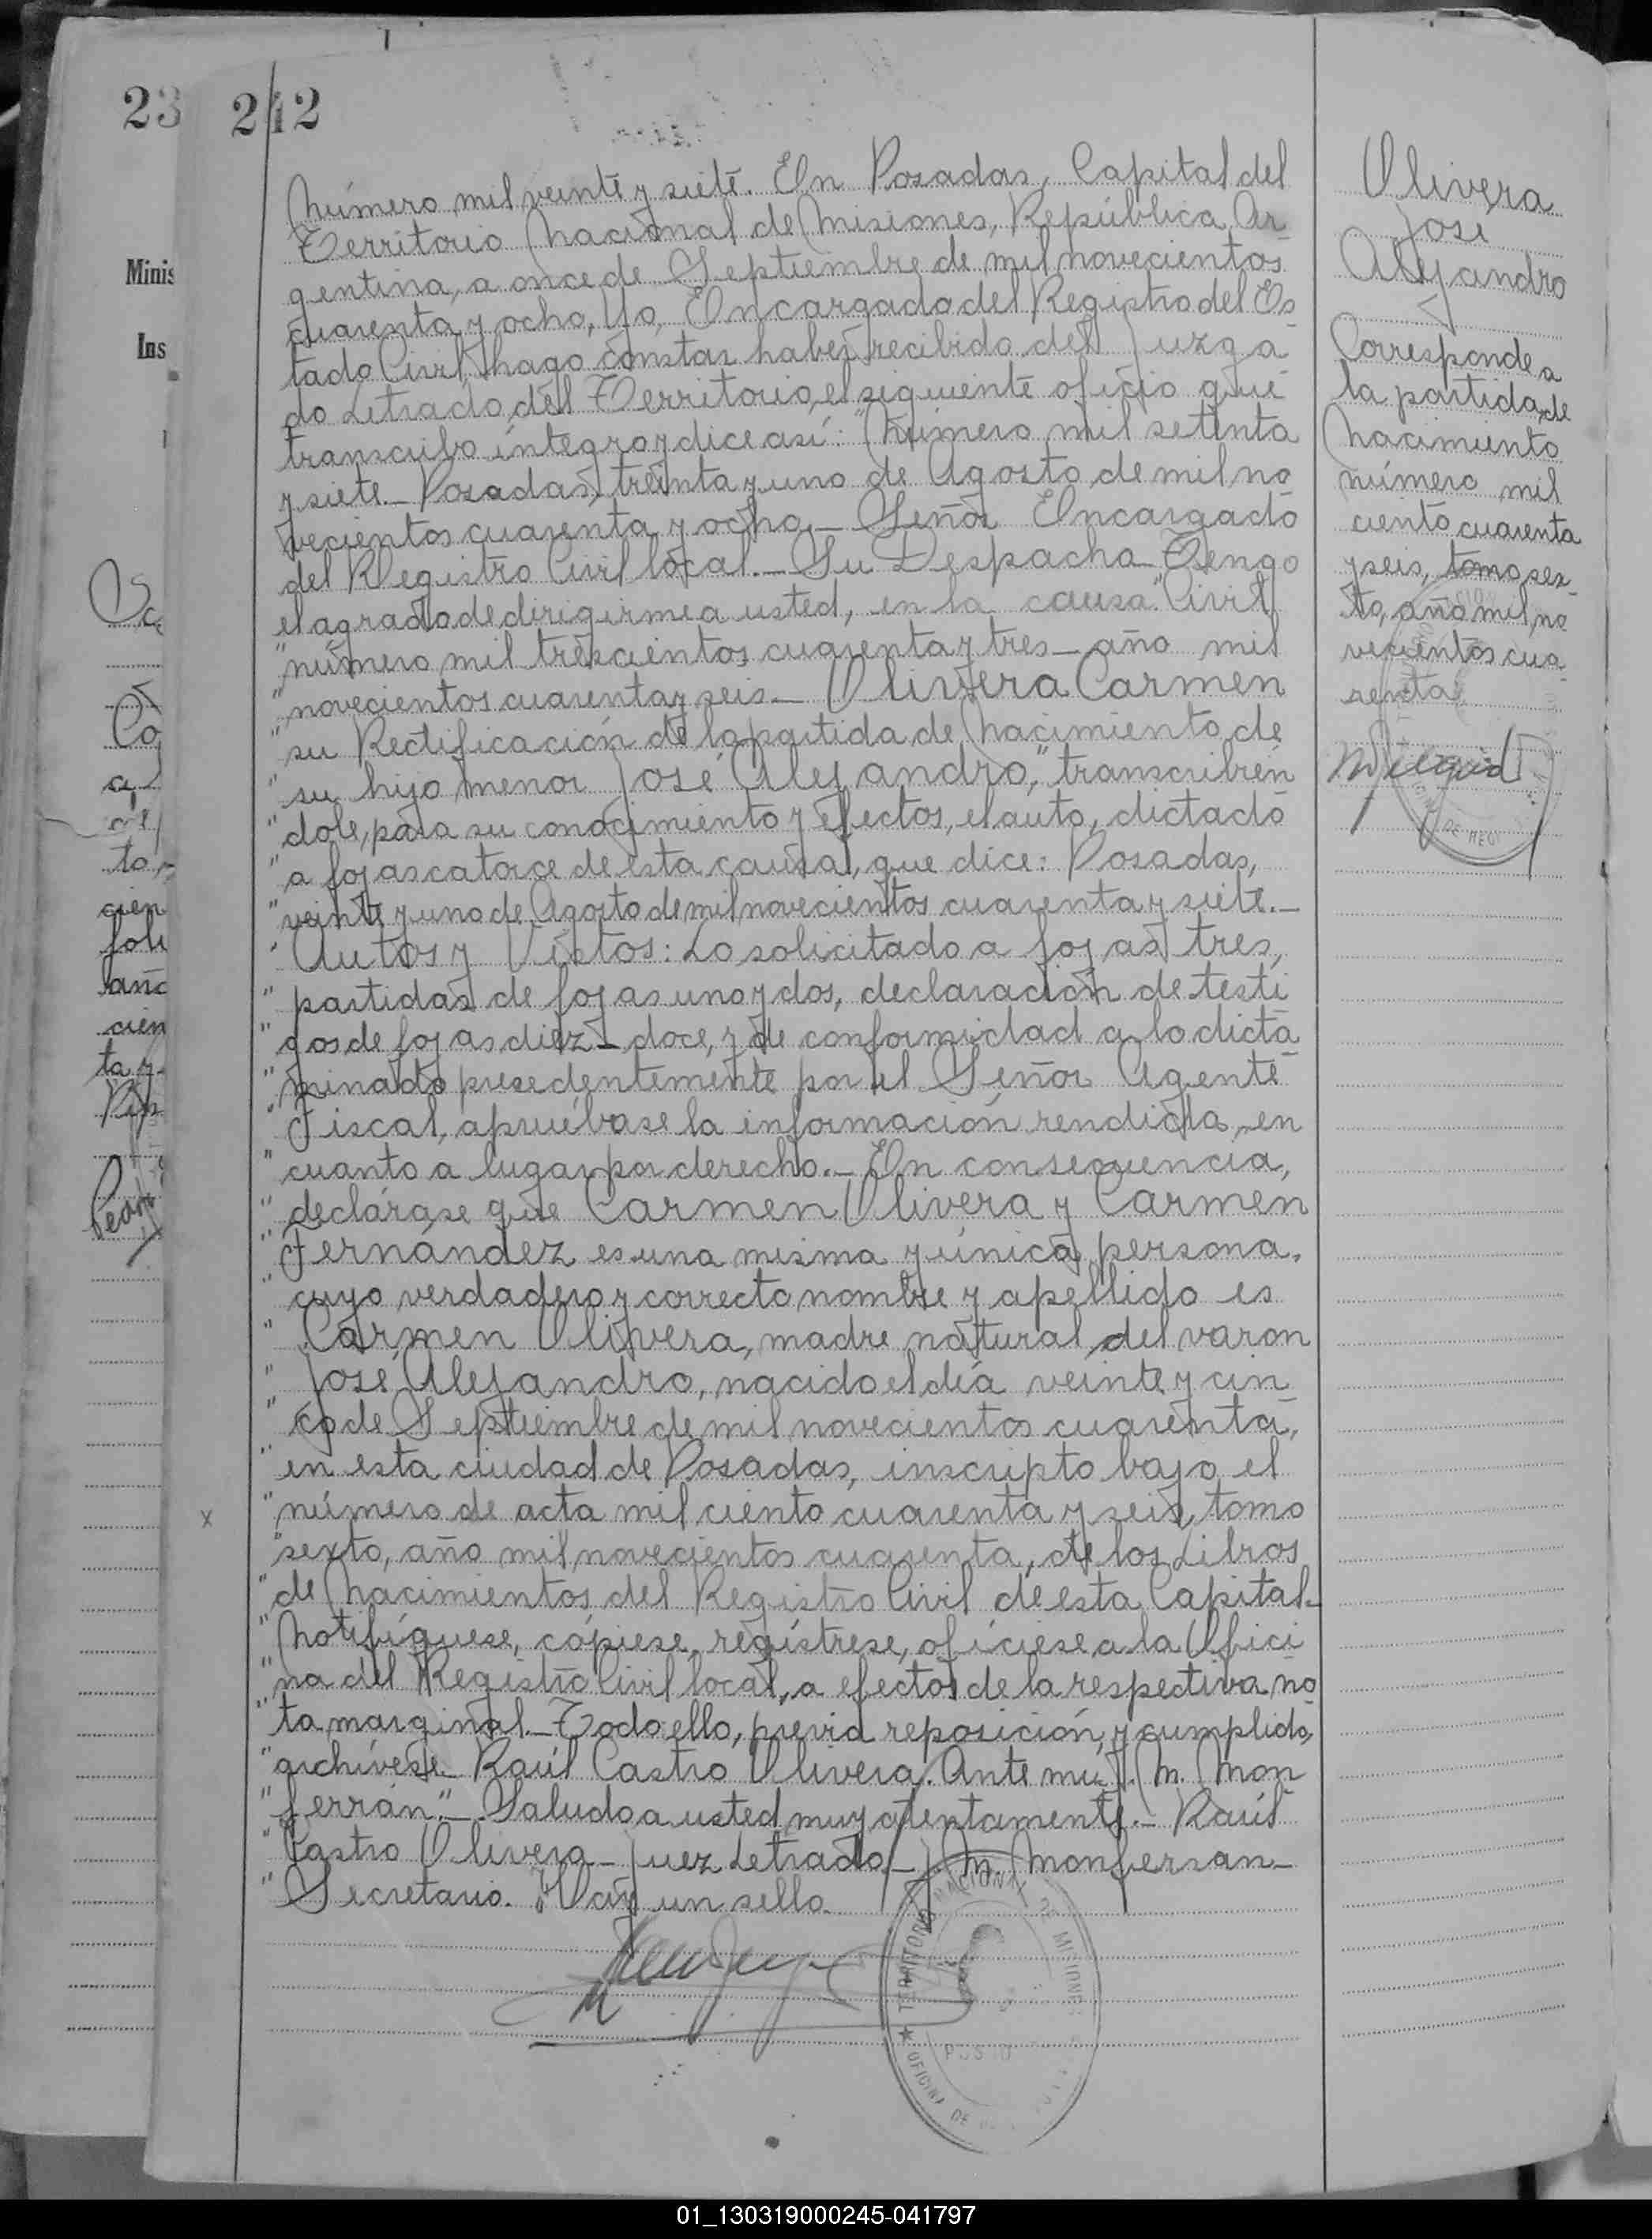 23
212
Minis
Ins
Número mil veinte y siete. En Posadas, Capital del
Territorio Nacional de Misiones, República Ar
gentina, a once de Septiembre de mil novecientos
cuarenta y ocho, Yo, Encargado del Registro del Es
tado Civil, hago constar haber recibido del Juzga
do Letrado del Territorio, el siguiente oficio que
transcribo íntegro y dice así: "Número mil setenta
y siete._ Posadas, treinta y uno de Agosto de mil no
vecientos cuarenta y ocho._ Señor Encargado
del Registro Civil local._ Su Despacho_ Tengo
el agrado de dirigirme a usted, en la causa "Civil
"número mil trescientos cuarenta y tres_ año mil
"novecientos cuarenta y seis_ Olivera Carmen
"su Rectificación de la partida de Nacimiento de
"su hijo menor José Alejandro," transcribién
"dole, para su conocimiento y efectos, el auto, dictado
"a fojas catorce de esta causa, que dice: Posadas,
"veinte y uno de Agosto de mil novecientos cuarenta y siete._
"Autos y Vistos: Lo solicitado a fojas tres,
"partidas de fojas uno y dos, declaración de testi
"gos de fojas diez_ doce, y de conformidad a lo dicta
"minado precedentemente por el Señor Agente
"Fiscal, apruébase la información rendida, en
"cuanto a lugar por derecho._ En consecuencia,
"declárase que Carmen Olivera y Carmen
"Fernández es una misma y única persona,
"cuyo verdadero y correcto nombre y apellido es
"Carmen Olivera, madre natural del varon
"José Alejandro, nacido el día veinte y cin
"co de Septiembre de mil novecientos cuarenta,
"en esta ciudad de Posadas, inscripto bajo el
"número de acta mil ciento cuarenta y seis, tomo
"sexto, año mil novecientos cuarenta, de los Libros
"de Nacimientos del Registro Civil de esta Capital._
"Notifíquese, cópiese, regístrese, ofíciese a la Ofici
"na del Registro Civil local, a efectos de la respectiva no
"ta marginal._ Todo ello, previa reposición, y cumplido,
"archívese_ Raúl Castro Olivera. Ante mi: J. M. Mon
"ferran."_ Saludo a usted muy atentamente._ Raúl
"Castro Olivera_ Juez Letrado_ J. M. Monferran_
"Secretario. Hay un sello.
TERRITORIO NACIONAL DE MISIONES
OFICINA DE
Olivera
José
Alejandro
Corresponde a
la partida de
Nacimiento
número mil
ciento cuarenta
y seis, tomo sex
to, año mil no
vecientos cua
renta
01_130319000245-041797